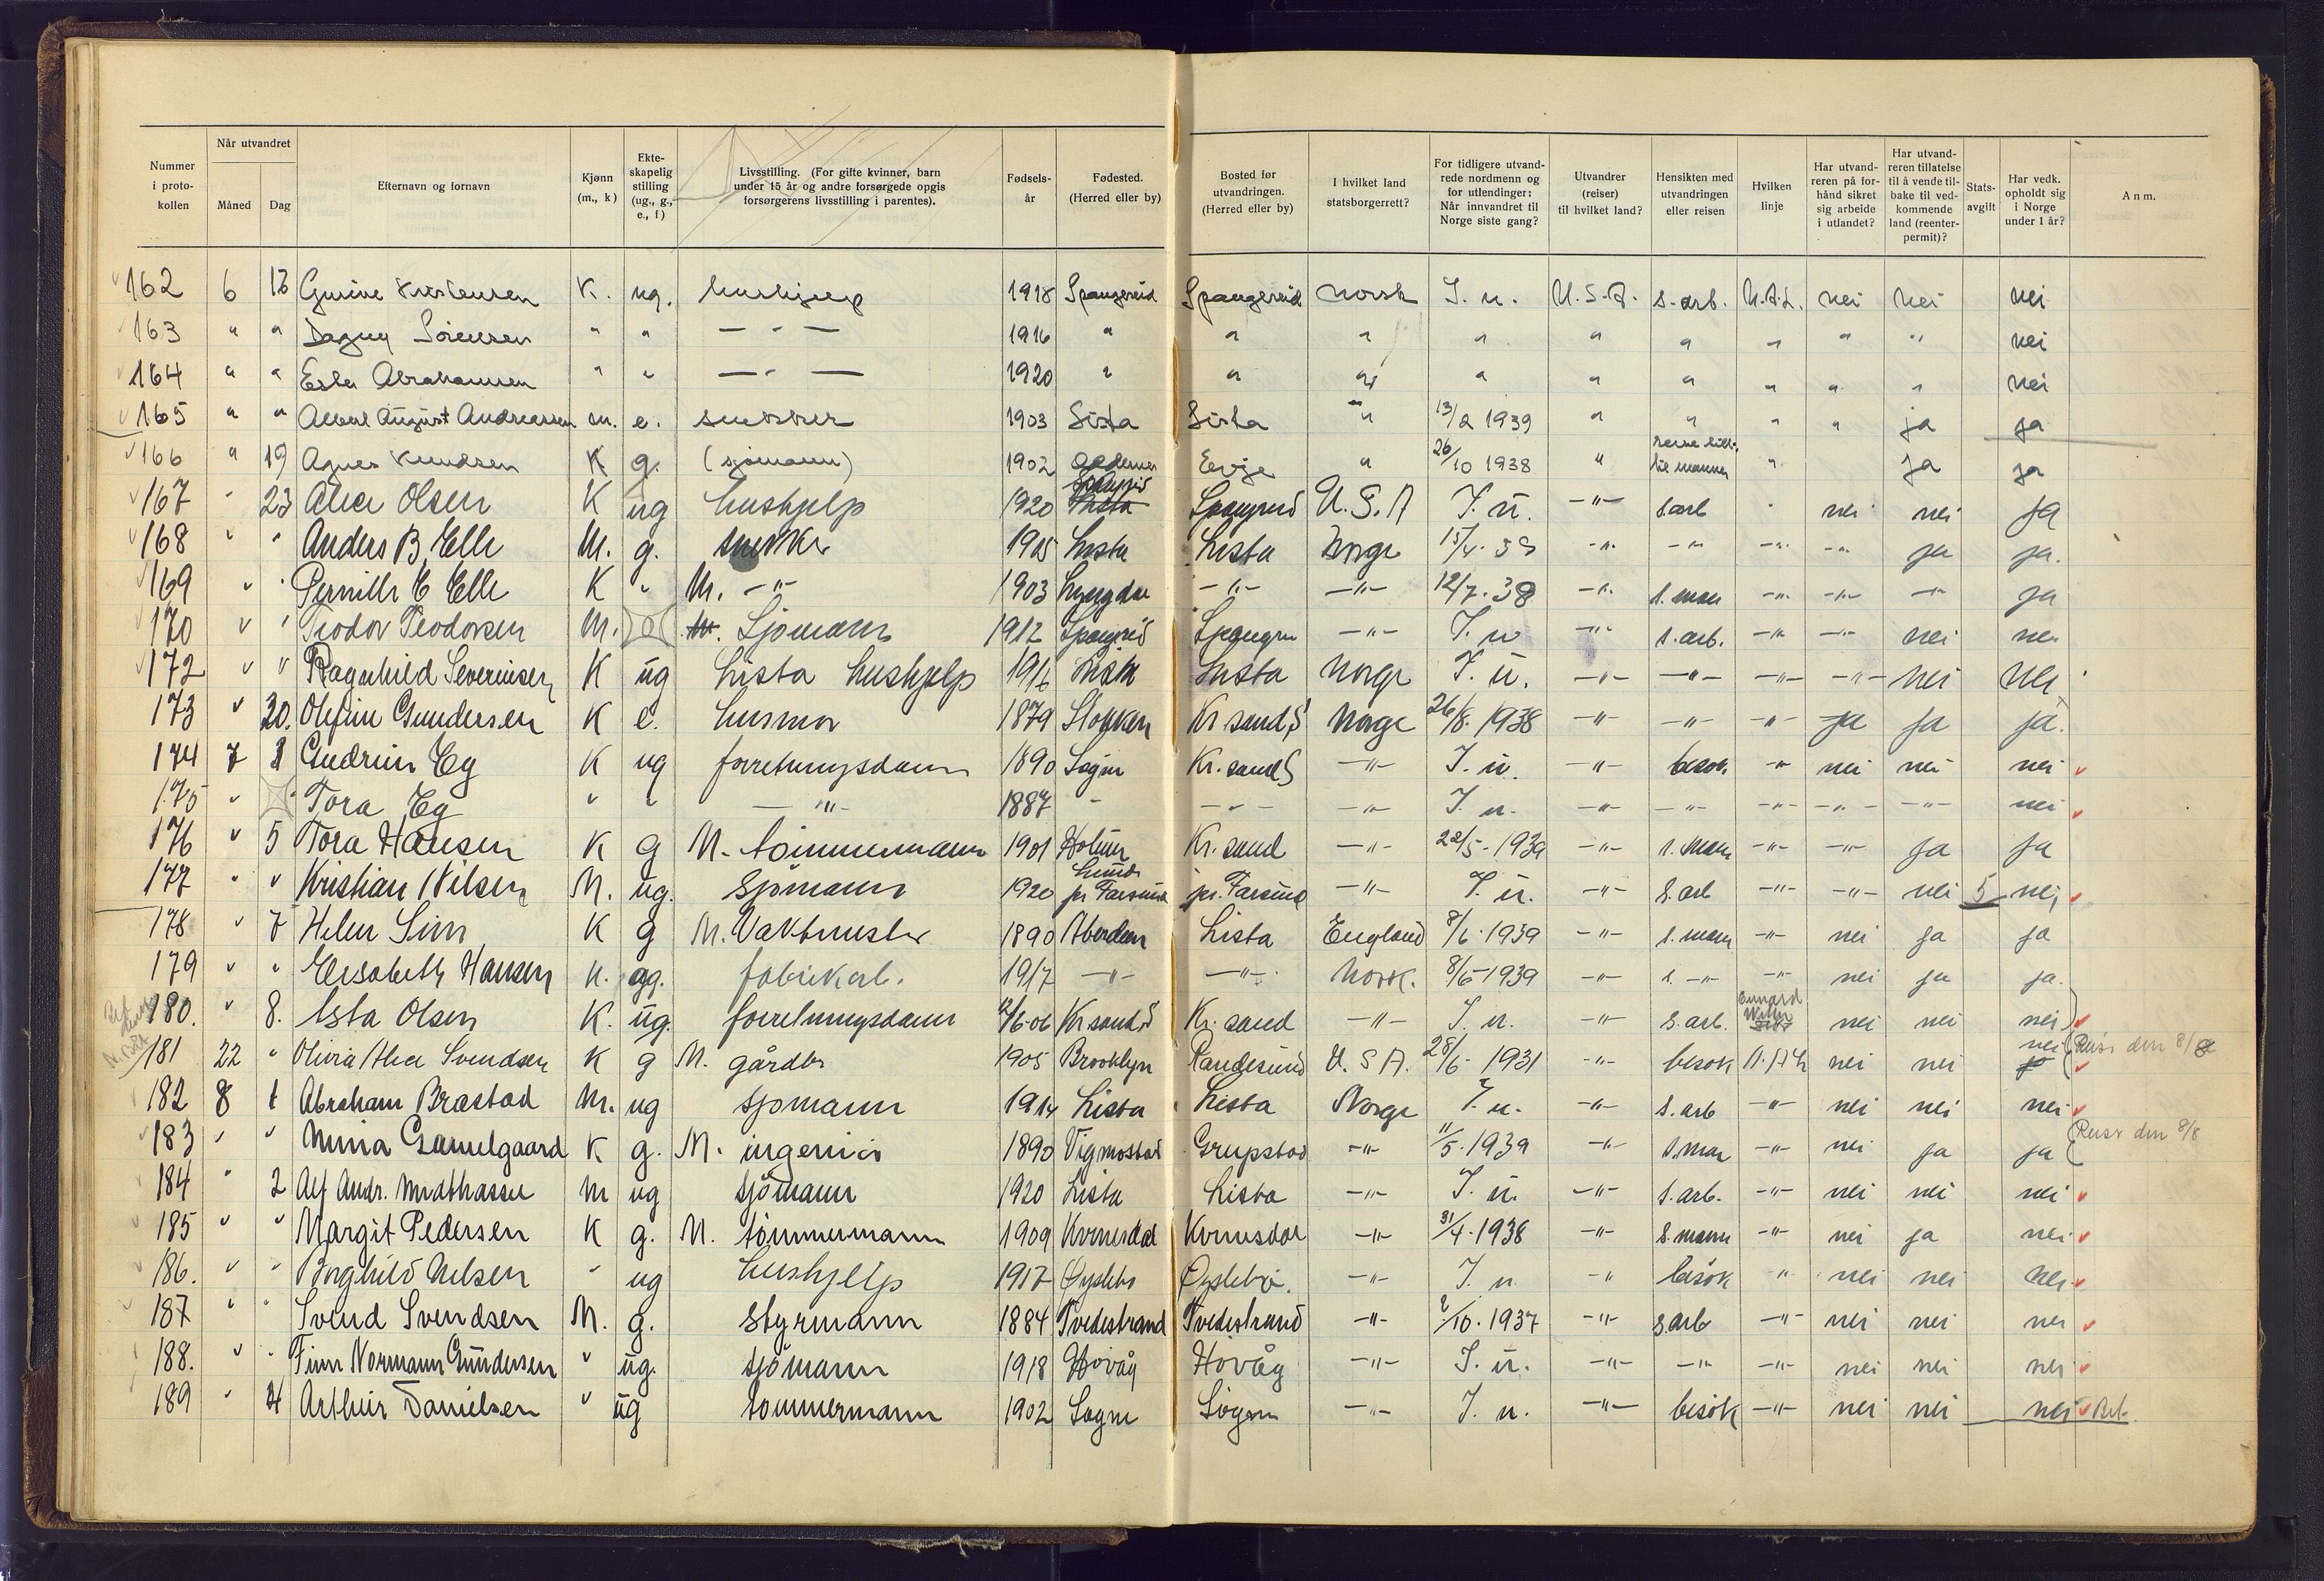 Nummer i proto- kollen | Når utvandret | Måned | Dag | Efternavn og fornavn | Kjønn (m., k) | Ekte- skapelig stilling (ug., g., e., f) | Livsstilling. (For gifte kvinner, barn under 15 år og andre forsørgede opgis forsørgerens livsstilling i parentes). | Fødsels- år | Fødested. (Herred eller by) | Bosted før utvandringen. (Herred eller by) | I hvilket land statsborgerrett? | For tidligere utvand- rede nordmenn og for utlendinger: Når innvandret til Norge siste gang? | Utvandrer (reiser) til hvilket land? | Hensikten med utvandringen eller reisen | Hvilken linje | Har utvand- reren på for- hånd sikret sig arbeide i utlandet? | Har utvand- reren tillatelse til å vende til- bake til ved- kommende land (reenter- permit)? | Stats- avgift | Har vedk. opholdt sig i Norge under 1 år? | Anm.
162 6 Kristensen K. ug. hushjelp 1918 Spangereid Spangereid norsk I. u. U.S.A. s. arb. N.A.L. nei nei nei
163 " " Dagny Sørensen " " — " — 1916 " " " " " " " " " nei
164 " " Abrahamsen " " — " — 1920 " " " " " " " " " nei
165 " " Albert August Andreassen m. e. snekker 1903 Lista Lista " 13/2 1939 " " " " ja ja
166 " 19 Agnes Knudsen K g. (sjømann) 1902 Evje " 26/10 1938 " til mannen " ja ja
167 " 23 Alice Olsen K ug hushjelp 1920 U.S.A I. u. -"- s. arb " nei nei ja
168 " " Anders B. Elle M. g. snekker Lista Lista Norge 15/4. -"- -"- -"- -"- ja ja.
169 " " Pernille E Elle K " M. -"- 1903 Lyngdal -"- -"- 12/7. 38 -"- s. man -"- -"- -"- ja
170 " " Teodor Teodorsen M. Sjømann 1912 -"- I. u -"- s. arb. -"- -"- nei nei
172 " " Ragnhild Severinsen K ug Lista hushjelp 1916 Lista Lista Norge I. u. -"- -"- -"- -"- nei nei
173 " 30. Gundersen K e. husmor 1879 Kr sand S Norge 26/8. 1938 -"- -"- -"- ja ja ja.
174 7 Gudrun Eg K ug forretningsdame 1890 Søgne Kr. sand S -"- I. u. -"- besøk -"- nei nei nei
175 " Tora Eg " " -"- 1887 - -"- -"- I. u. -"- -"- -"- -"- -"- nei
176 " 5 Tora Hansen K g M. tømmermann 1901 Holum Kr. sand -"- 22/5-1939 -"- s. man -"- -"- ja ja
177 " " Kristian Nilsen M. ug. Sjømann 1920 pr Farsund pr. Farsund -"- I. u. -"- s. arb -"- -"- nei 5 nei
178 " 7 Helen Sim K g M. Vaktmester 1890 Aberdeen Lista England 8/6. 1939 -"- s. mann -"- nei ja ja
179 " " Elisabeth Hansen K. fabrikarb. 1917 -"- -"- Norsk. 8/6-1939 -"- s. -"- -"- nei ja ja.
180. " 8. Asta Olsen K. ug. forretningsdame Kr sand S Kr. sand -"- I. u. -"- s. arb. nei nei nei
181 22 " Olivia Alice Svendsen K g M. gårdbr 1905 Brooklyn Randesund U.S.A. 28/6 1931 -"- besøk nei nei nei Reiser den 8/8
182 8 1 Abraham Brastad M. ug sjømann 1914 Lista Lista Norge I. u. -"- s. arb -"- nei nei nei
183 " " Mina Gamelgaard K g. M. ingeniør 1890 Vigmostad -"- 11/5. 1939 -"- s. man -"- nei ja ja Reiser den 8/8
184 " 2 Alf Andr. m ug sjømann 1920 Lista Lista -"- I. u. -"- s. arb. -"- nei nei nei
185 " " Margit Pedersen K g. M. tømmermann 1909 Kvinesdal Kvinesdal -"- 31/4. 1938 -"- s. mann -"- nei ja nei
186. " " Borghild Nilsen " ug hushjelp 1917 Øyslebø Øyslebø. -"- I. u -"- besøk " nei nei nei
187 " " Svend Svendsen M. g. Styrmann 1884 Tvedestrand Tvedestrand -"- 2/10. 1937 -"- s. arb -"- nei nei nei
188. " " Finn Normann Gundersen " ug. sjømann 1918 Høvåg Høvåg -"- I. u. -"- -"- -"- nei nei nei
189 " 4 Arthur Danielsen " ug tømmermann 1902 Søgne Søgne -"- I. u. -"- besøk -"- nei nei nei